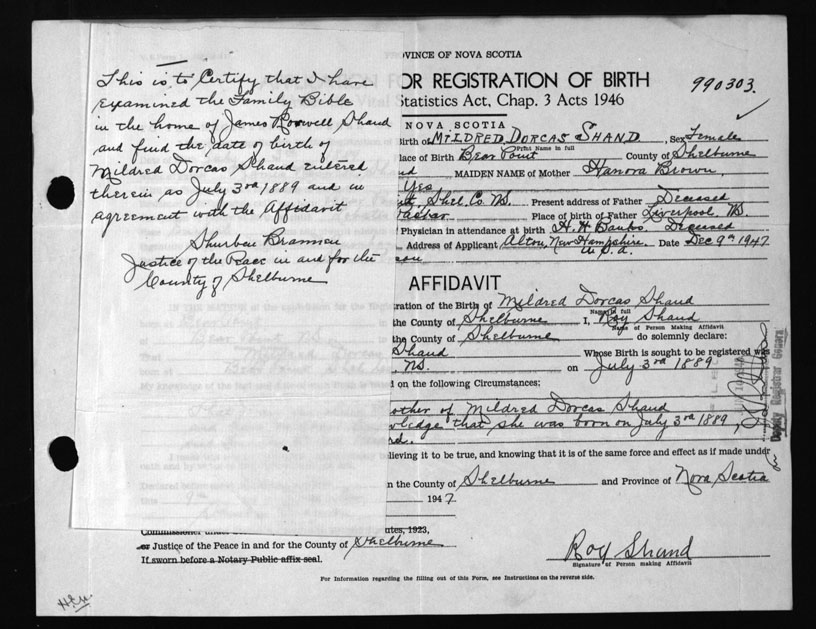 This is to Certify that I have
examined the Family Bible
in the home of James Roswell Shand
and find the date of birth of
Mildred Dorcas Shand entered
therein as July 3rd 1889 and in
agreement with the Affidavit
Justice of the Peace in and for the
County of Shelburne
OVINCE OF NOVA SCOTIA
FOR REGISTRATION OF BIRTH
990303.
Statistics Act, Chap. 3 Acts 1946
NOVA SCOTIA
Birth of MILDRED DORCAS SHAND, Sex Female
Print Name in full
lace of Birth Bear Point County of Shelburne
MAIDEN NAME of Mother Hanora Brown,
Yes
Shel. Co. N.S. Present address of Father Deceased
Place of birth of Father Liverpool, N.S.
Physician in attendance at birth H. H. Banks. Deceased
Address of Applicant Alton, New Hampshire, U.S.A. Date Dec 9th 1947
AFFIDAVIT
tration of the Birth of Mildred Dorcas Shand
Name in full
the County of Shelburne I, Roy Shand
Name of Person Making Affidavit
the County of Shelburne do solemnly declare:
Shand Whose Birth is sought to be registered was
N.S. on July 3rd 1889
d on the following Circumstances:
other of Mildred Dorcas Shand
wledge that she was born on July 3rd 1889,
elieving it to be true, and knowing that it is of the same force and effect as if made under
n the County of Shelburne and Province of Nova Scotia
1947
Commissioner under utes, 1923,
or Justice of the Peace in and for the County of Shelburne
If sworn before a Notary Public affix seal.
Roy Shand
Signature of Person making Affidavit
For Information regarding the filling out of this Form, see Instructions on the reverse side.
Deputy Registrar General